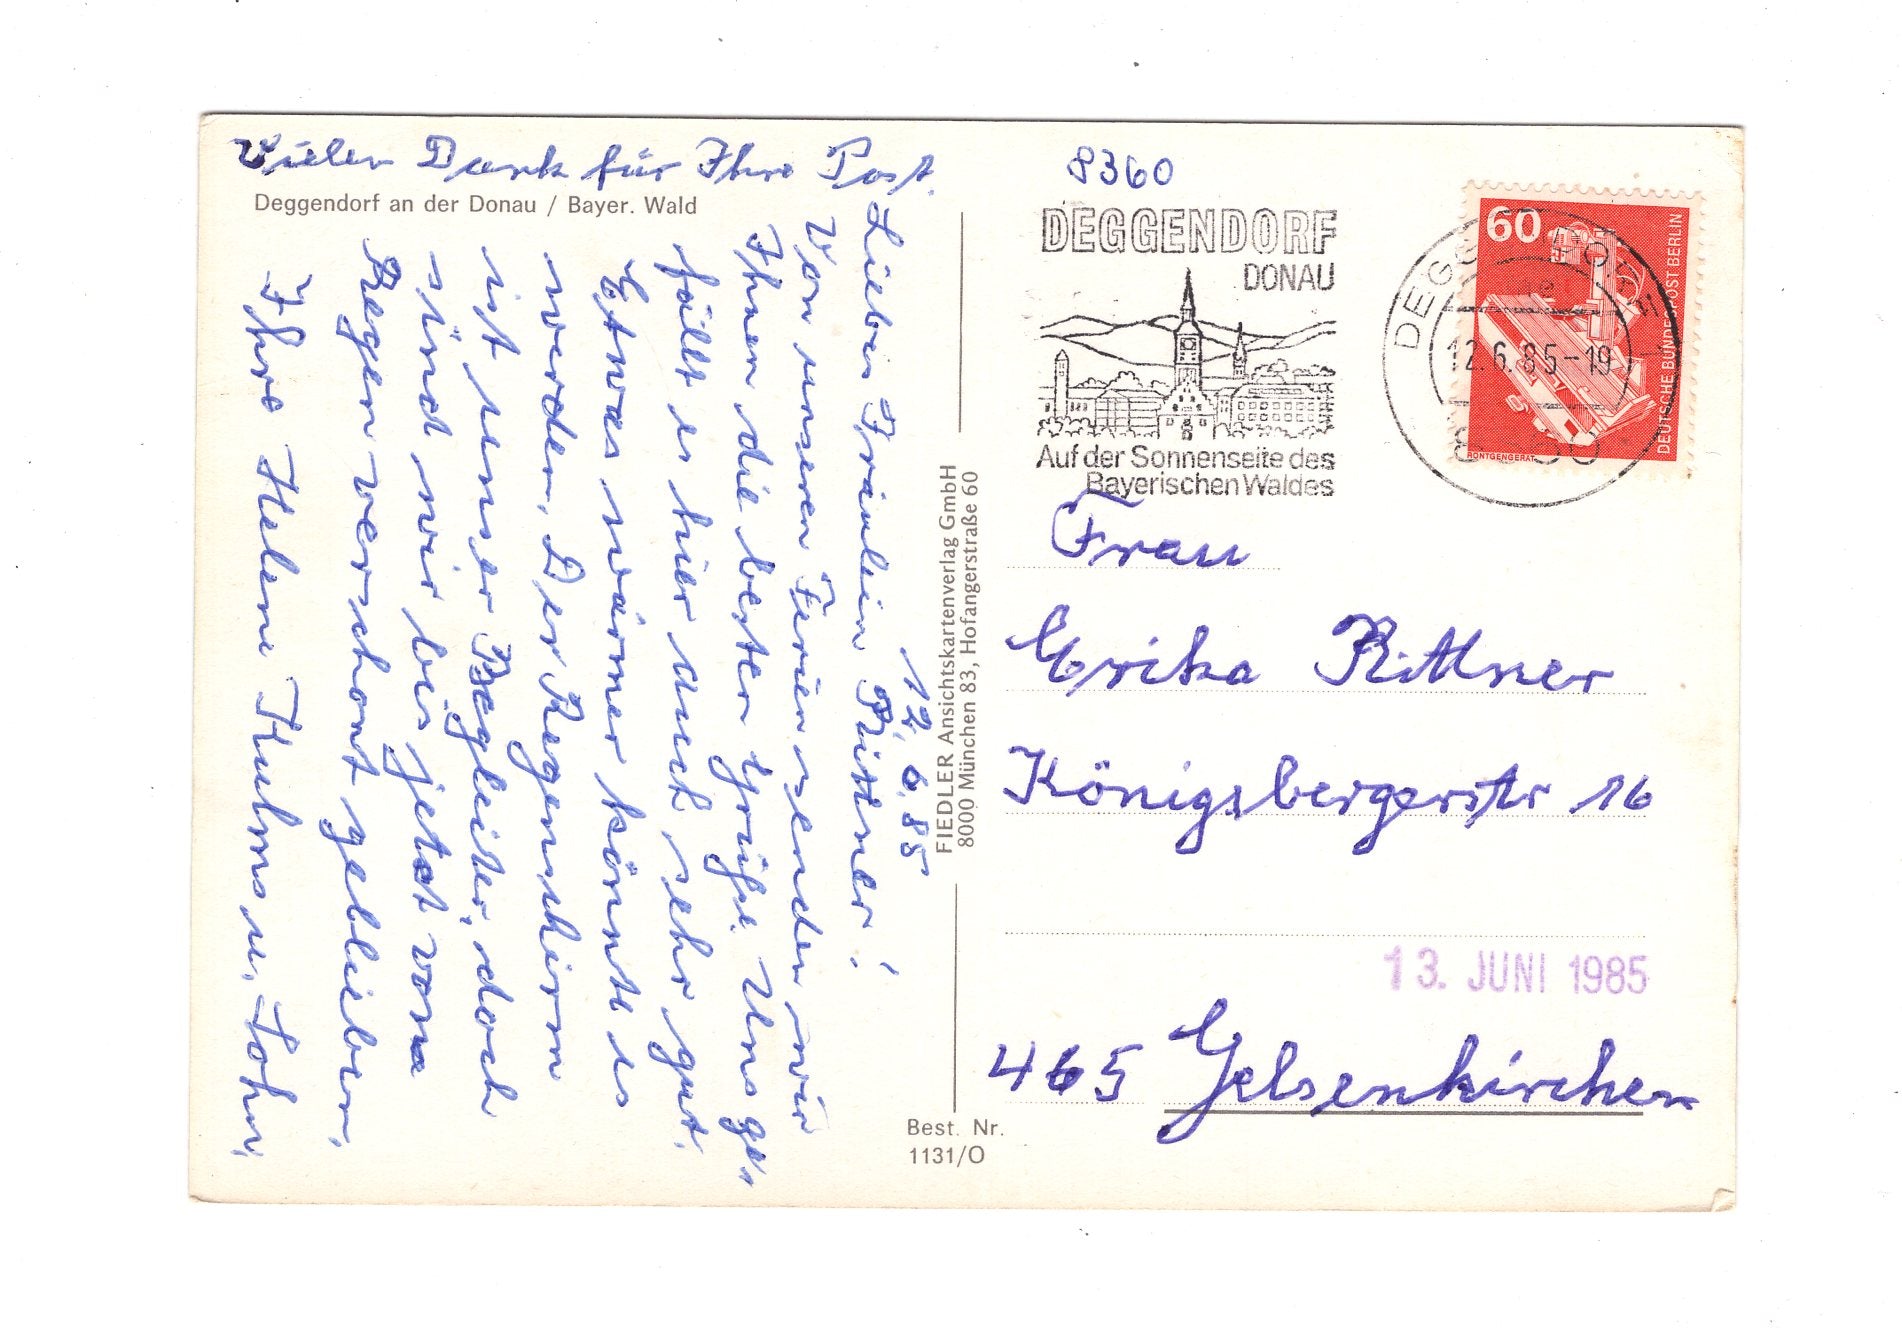 Vielen Dank für Ihre Post.
Deggendorf an der Donau / Bayer. Wald
12.6.85
Liebes Fräulein Rittner!
Von unseren Ferien senden wir
Ihnen die besten Grüße. Uns ge-
fällt es hier auch sehr gut.
Etwas wärmer könnte es
werden. Der Regenschirm
ist unser Begleiter, doch
sind wir bis jetzt vom
Regen verschont geblieben.
Ihre Helene Kulms u. Sohn.
FIEDLER Ansichtskartenverlag GmbH
8000 München 83, Hofangerstraße 60
Best. Nr.
1131/O
8360
DEGGENDORF
DONAU
Auf der Sonnenseite des
Bayerischen Waldes
DEGGENDORF
12.6.85-19
8360
60
DEUTSCHE BUNDESPOST BERLIN
RÖNTGENGERÄT
Frau
Erika Rittner
Königsbergerstr 16
13. JUNI 1985
465 Gelsenkirchen